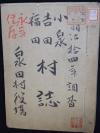 明治拾四年調査
小泉
吉田村誌
福田
永年保存
泉田村役場